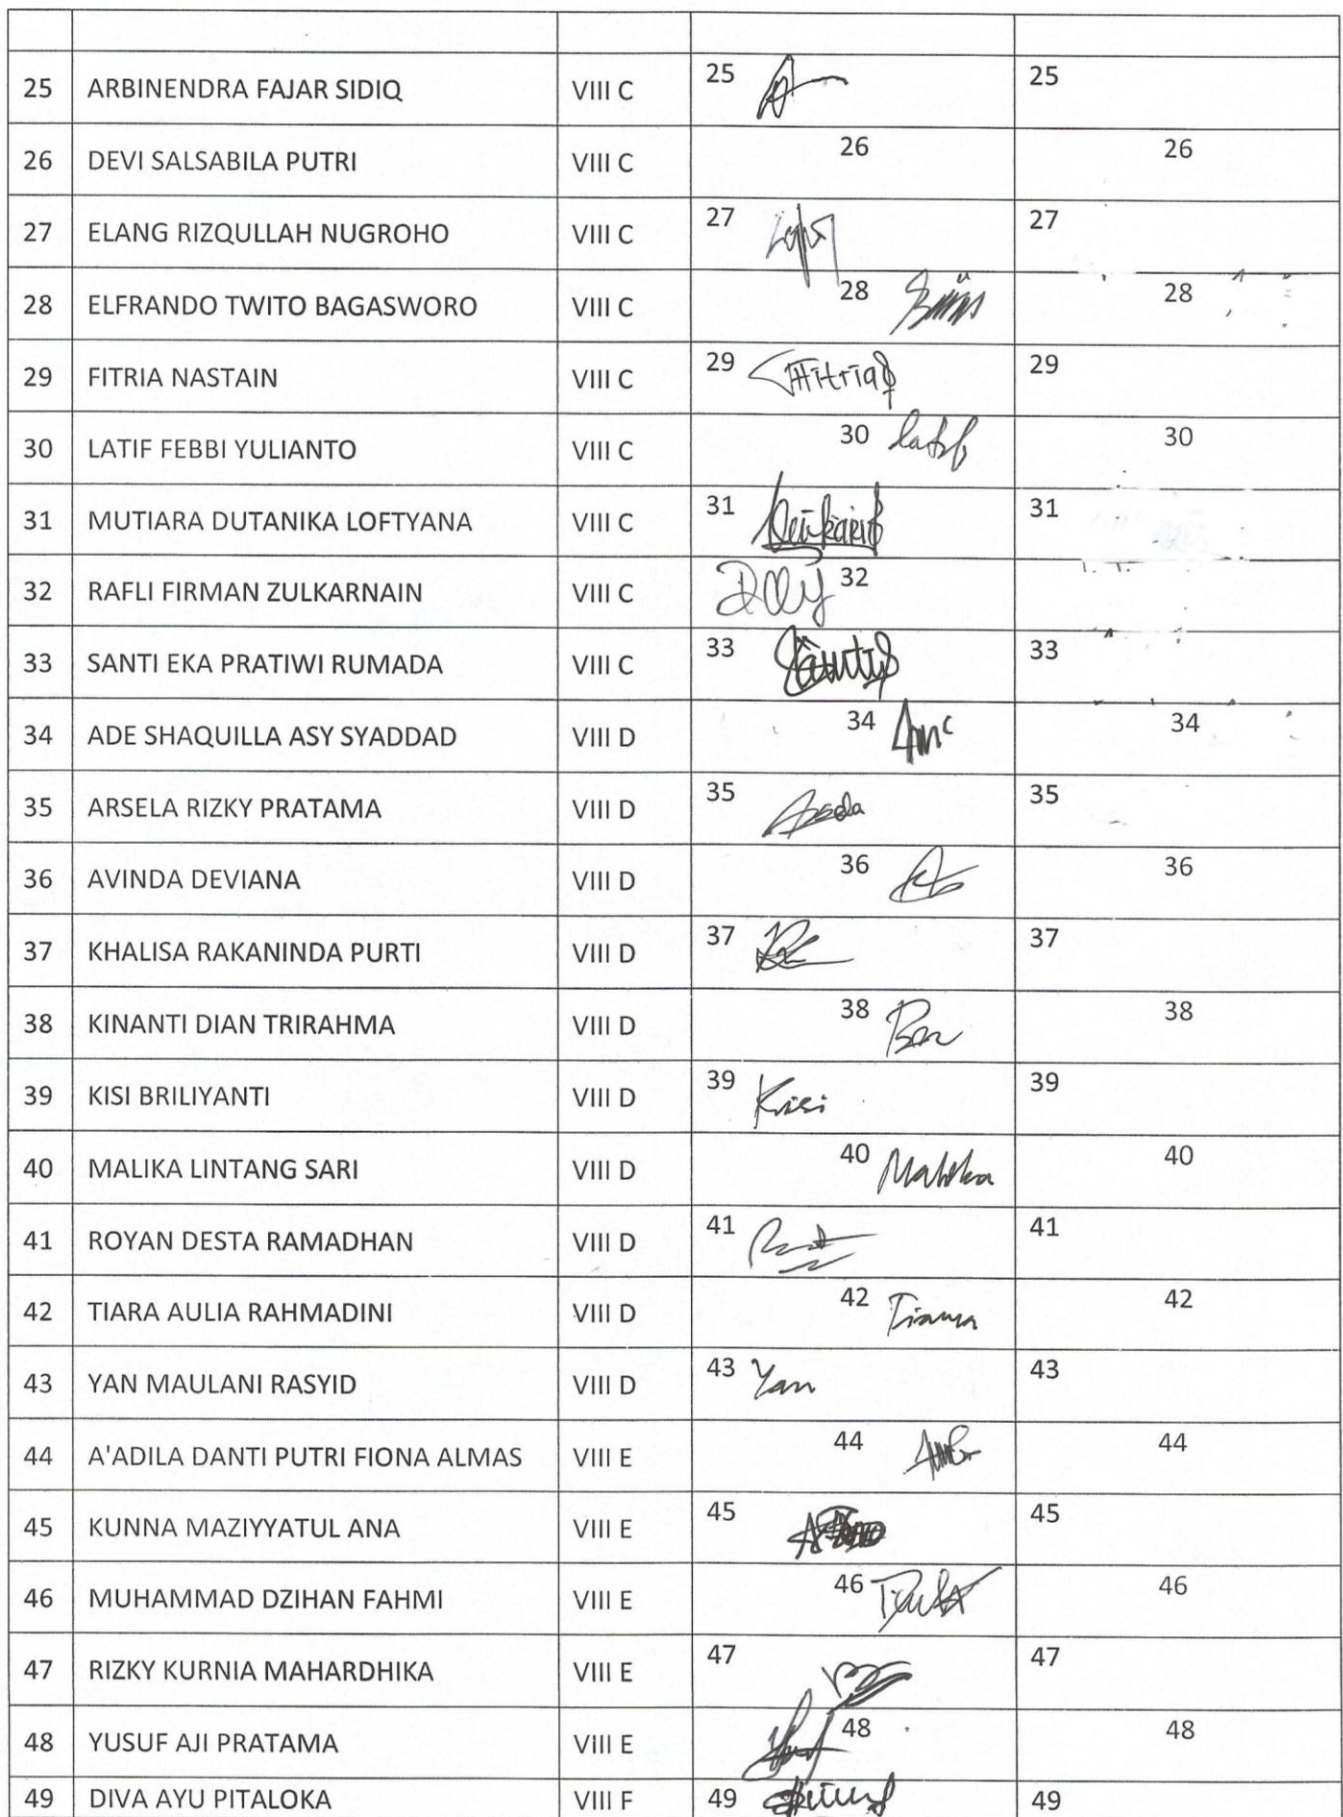 25 ARBINENDRA FAJAR SIDIQ VIII C 25 25
26 DEVI SALSABILA PUTRI VIII C 26 26
27 ELANG RIZQULLAH NUGROHO VIII C 27 27
28 ELFRANDO TWITO BAGASWORO VIII C 28 28
29 FITRIA NASTAIN VIII C 29 Fitria 29
30 LATIF FEBBI YULIANTO VIII C 30 Latif 30
31 MUTIARA DUTANIKA LOFTYANA VIII C 31 31
32 RAFLI FIRMAN ZULKARNAIN VIII C 32
33 SANTI EKA PRATIWI RUMADA VIII C 33 Santi 33
34 ADE SHAQUILLA ASY SYADDAD VIII D 34 34
35 ARSELA RIZKY PRATAMA VIII D 35 35
36 AVINDA DEVIANA VIII D 36 36
37 KHALISA RAKANINDA PURTI VIII D 37 37
38 KINANTI DIAN TRIRAHMA VIII D 38 38
39 KISI BRILIYANTI VIII D 39 Kisi 39
40 MALIKA LINTANG SARI VIII D 40 Malika 40
41 ROYAN DESTA RAMADHAN VIII D 41 41
42 TIARA AULIA RAHMADINI VIII D 42 Tiara 42
43 YAN MAULANI RASYID VIII D 43 Yan 43
44 A'ADILA DANTI PUTRI FIONA ALMAS VIII E 44 44
45 KUNNA MAZIYYATUL ANA VIII E 45 45
46 MUHAMMAD DZIHAN FAHMI VIII E 46 46
47 RIZKY KURNIA MAHARDHIKA VIII E 47 47
48 YUSUF AJI PRATAMA VIII E 48 48
49 DIVA AYU PITALOKA VIII F 49 49